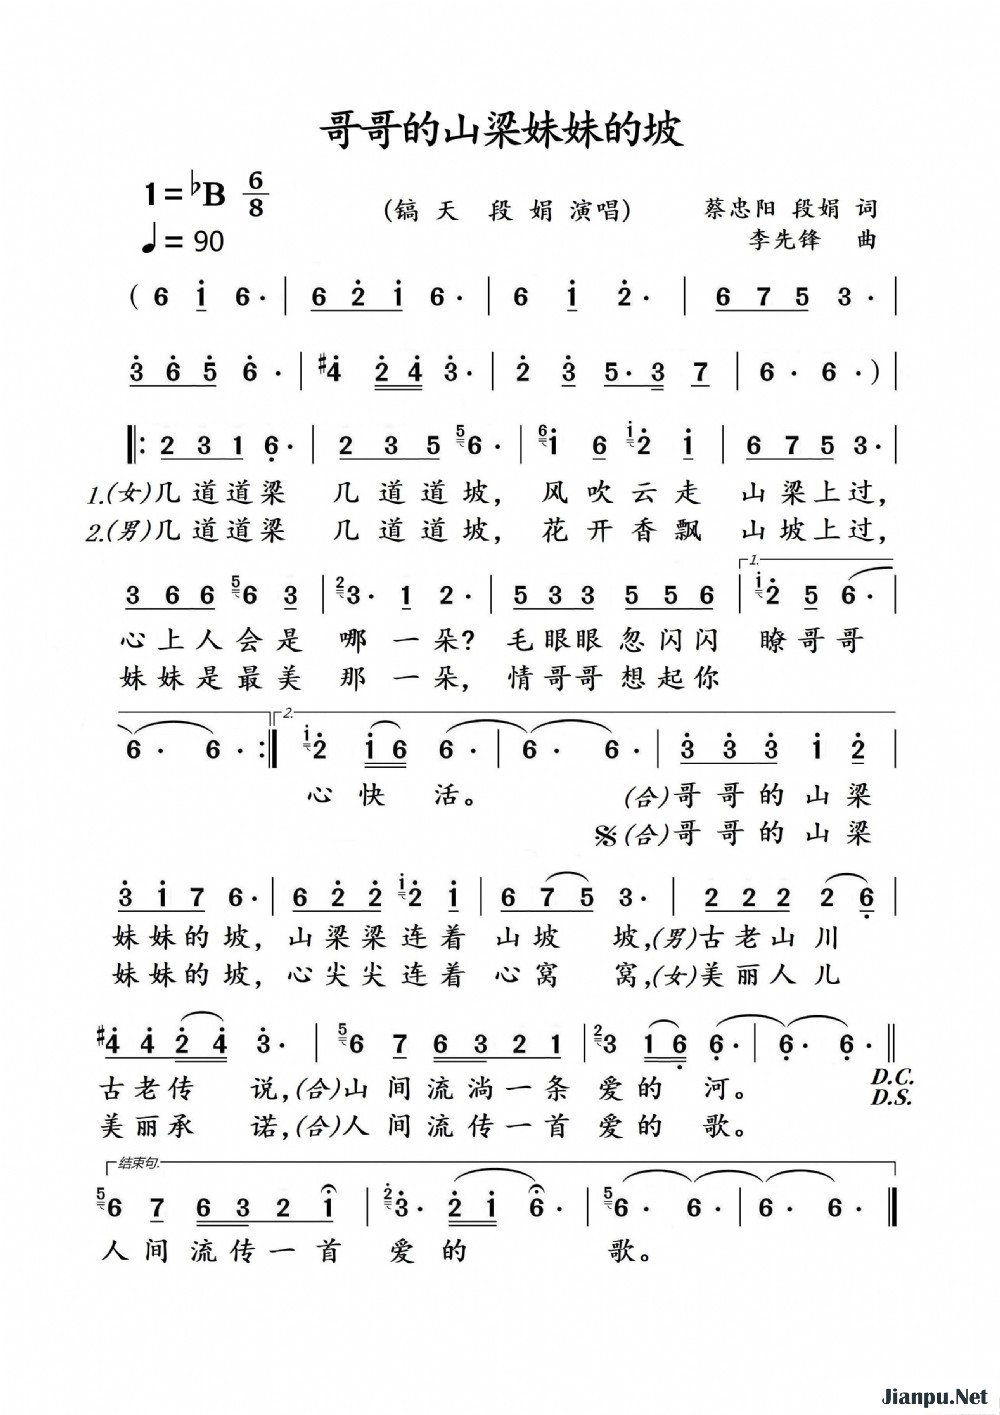 哥哥的山梁妹妹的坡
1=♭B 6/8
(镐天 段娟演唱) 蔡忠阳 段娟 词
♩= 90 李先锋 曲
( 6 i 6· | 6 2̇ i 6· | 6 i 2̇· | 6 7 5 3· |
3̇ 6̇ 5̇ 6̇· | #4̇ 2̇ 4̇ 3̇· | 2̇ 3̇ 5· 3 7 | 6· 6· ) |
‖: 2 3 1 6̣· | 2 3 5 ⁵6· | ⁶i 6 ⁱ2̇ i | 6 7 5 3· |
1.(女)几道道梁 几道道坡, 风吹云走 山梁上过,
2.(男)几道道梁 几道道坡, 花开香飘 山坡上过,
1.
3 6 6 ⁵6 3 | ²3· 1 2· | 5 3 3 5 5 6 | ⁱ2̇ 5 6·
心上人会是 哪一朵? 毛眼眼忽闪闪 瞭哥哥
妹妹是最美 那一朵, 情哥哥想起你
2.
6· 6· :‖ ⁱ2̇ i 6 6· | 6· 6· | 3̇ 3̇ 3̇ i 2̇
心快活。 (合)哥哥的山梁
𝄋(合)哥哥的山梁
3̇ i 7 6· | 6 2̇ 2̇ ⁱ2̇ i | 6 7 5 3· | 2 2 2 2 6̣ |
妹妹的坡, 山梁梁连着 山坡坡,(男)古老山川
妹妹的坡, 心尖尖连着 心窝窝,(女)美丽人儿
#4̇ 4̇ 2̇ 4̇ 3̇· | ⁵6 7 6 3 2 1 | ²3 1 6̣ 6̣· | 6̣· 6̣· ‖
古老传说,(合)山间流淌一条 爱的河。 D.C.
美丽承诺,(合)人间流传一首 爱的歌。 D.S.
结束句.
⁵6 7 6 3 2 i | ²3̇· 2̇ i 6· | ⁵6· 6· | 6· 6· ‖
人间流传一首 爱的歌。
Jianpu.Net